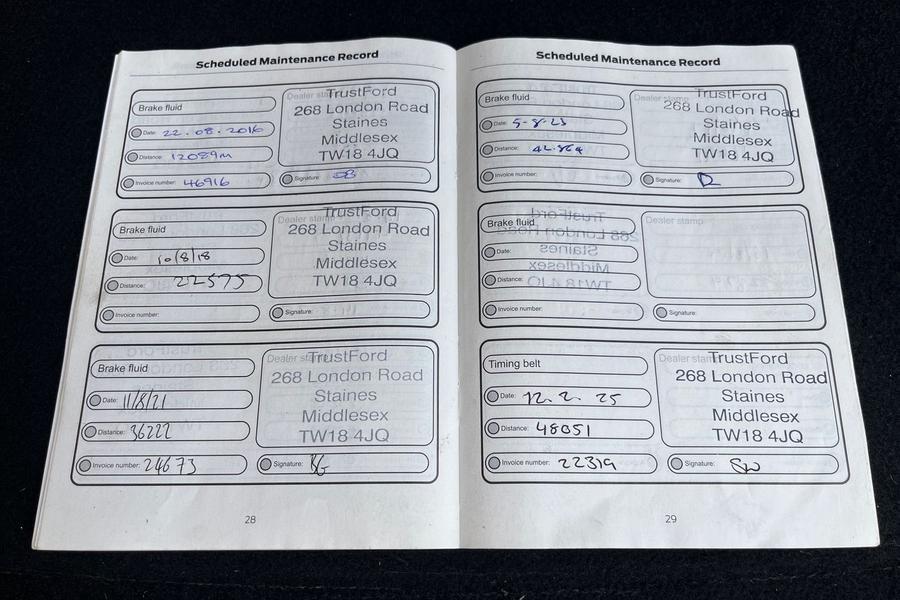 Scheduled Maintenance Record
Brake fluid
Date: 22.08.2016
Distance: 12089m
Invoice number: 46916
Dealer stamp
TrustFord
268 London Road
Staines
Middlesex
TW18 4JQ
Signature:
Brake fluid
Date: 10/8/18
Distance: 22575
Invoice number:
Dealer stamp
TrustFord
268 London Road
Staines
Middlesex
TW18 4JQ
Signature:
Brake fluid
Date: 11/8/21
Distance: 36222
Invoice number: 24673
Dealer stamp
TrustFord
268 London Road
Staines
Middlesex
TW18 4JQ
Signature:
28
Scheduled Maintenance Record
Brake fluid
Date: 5-8-23
Distance:
Invoice number:
Dealer stamp
TrustFord
268 London Road
Staines
Middlesex
TW18 4JQ
Signature:
Brake fluid
Date:
Distance:
Invoice number:
Dealer stamp
Signature:
Timing belt
Date: 12.2.25
Distance: 48051
Invoice number: 22319
Dealer stamp
TrustFord
268 London Road
Staines
Middlesex
TW18 4JQ
Signature: SW
29